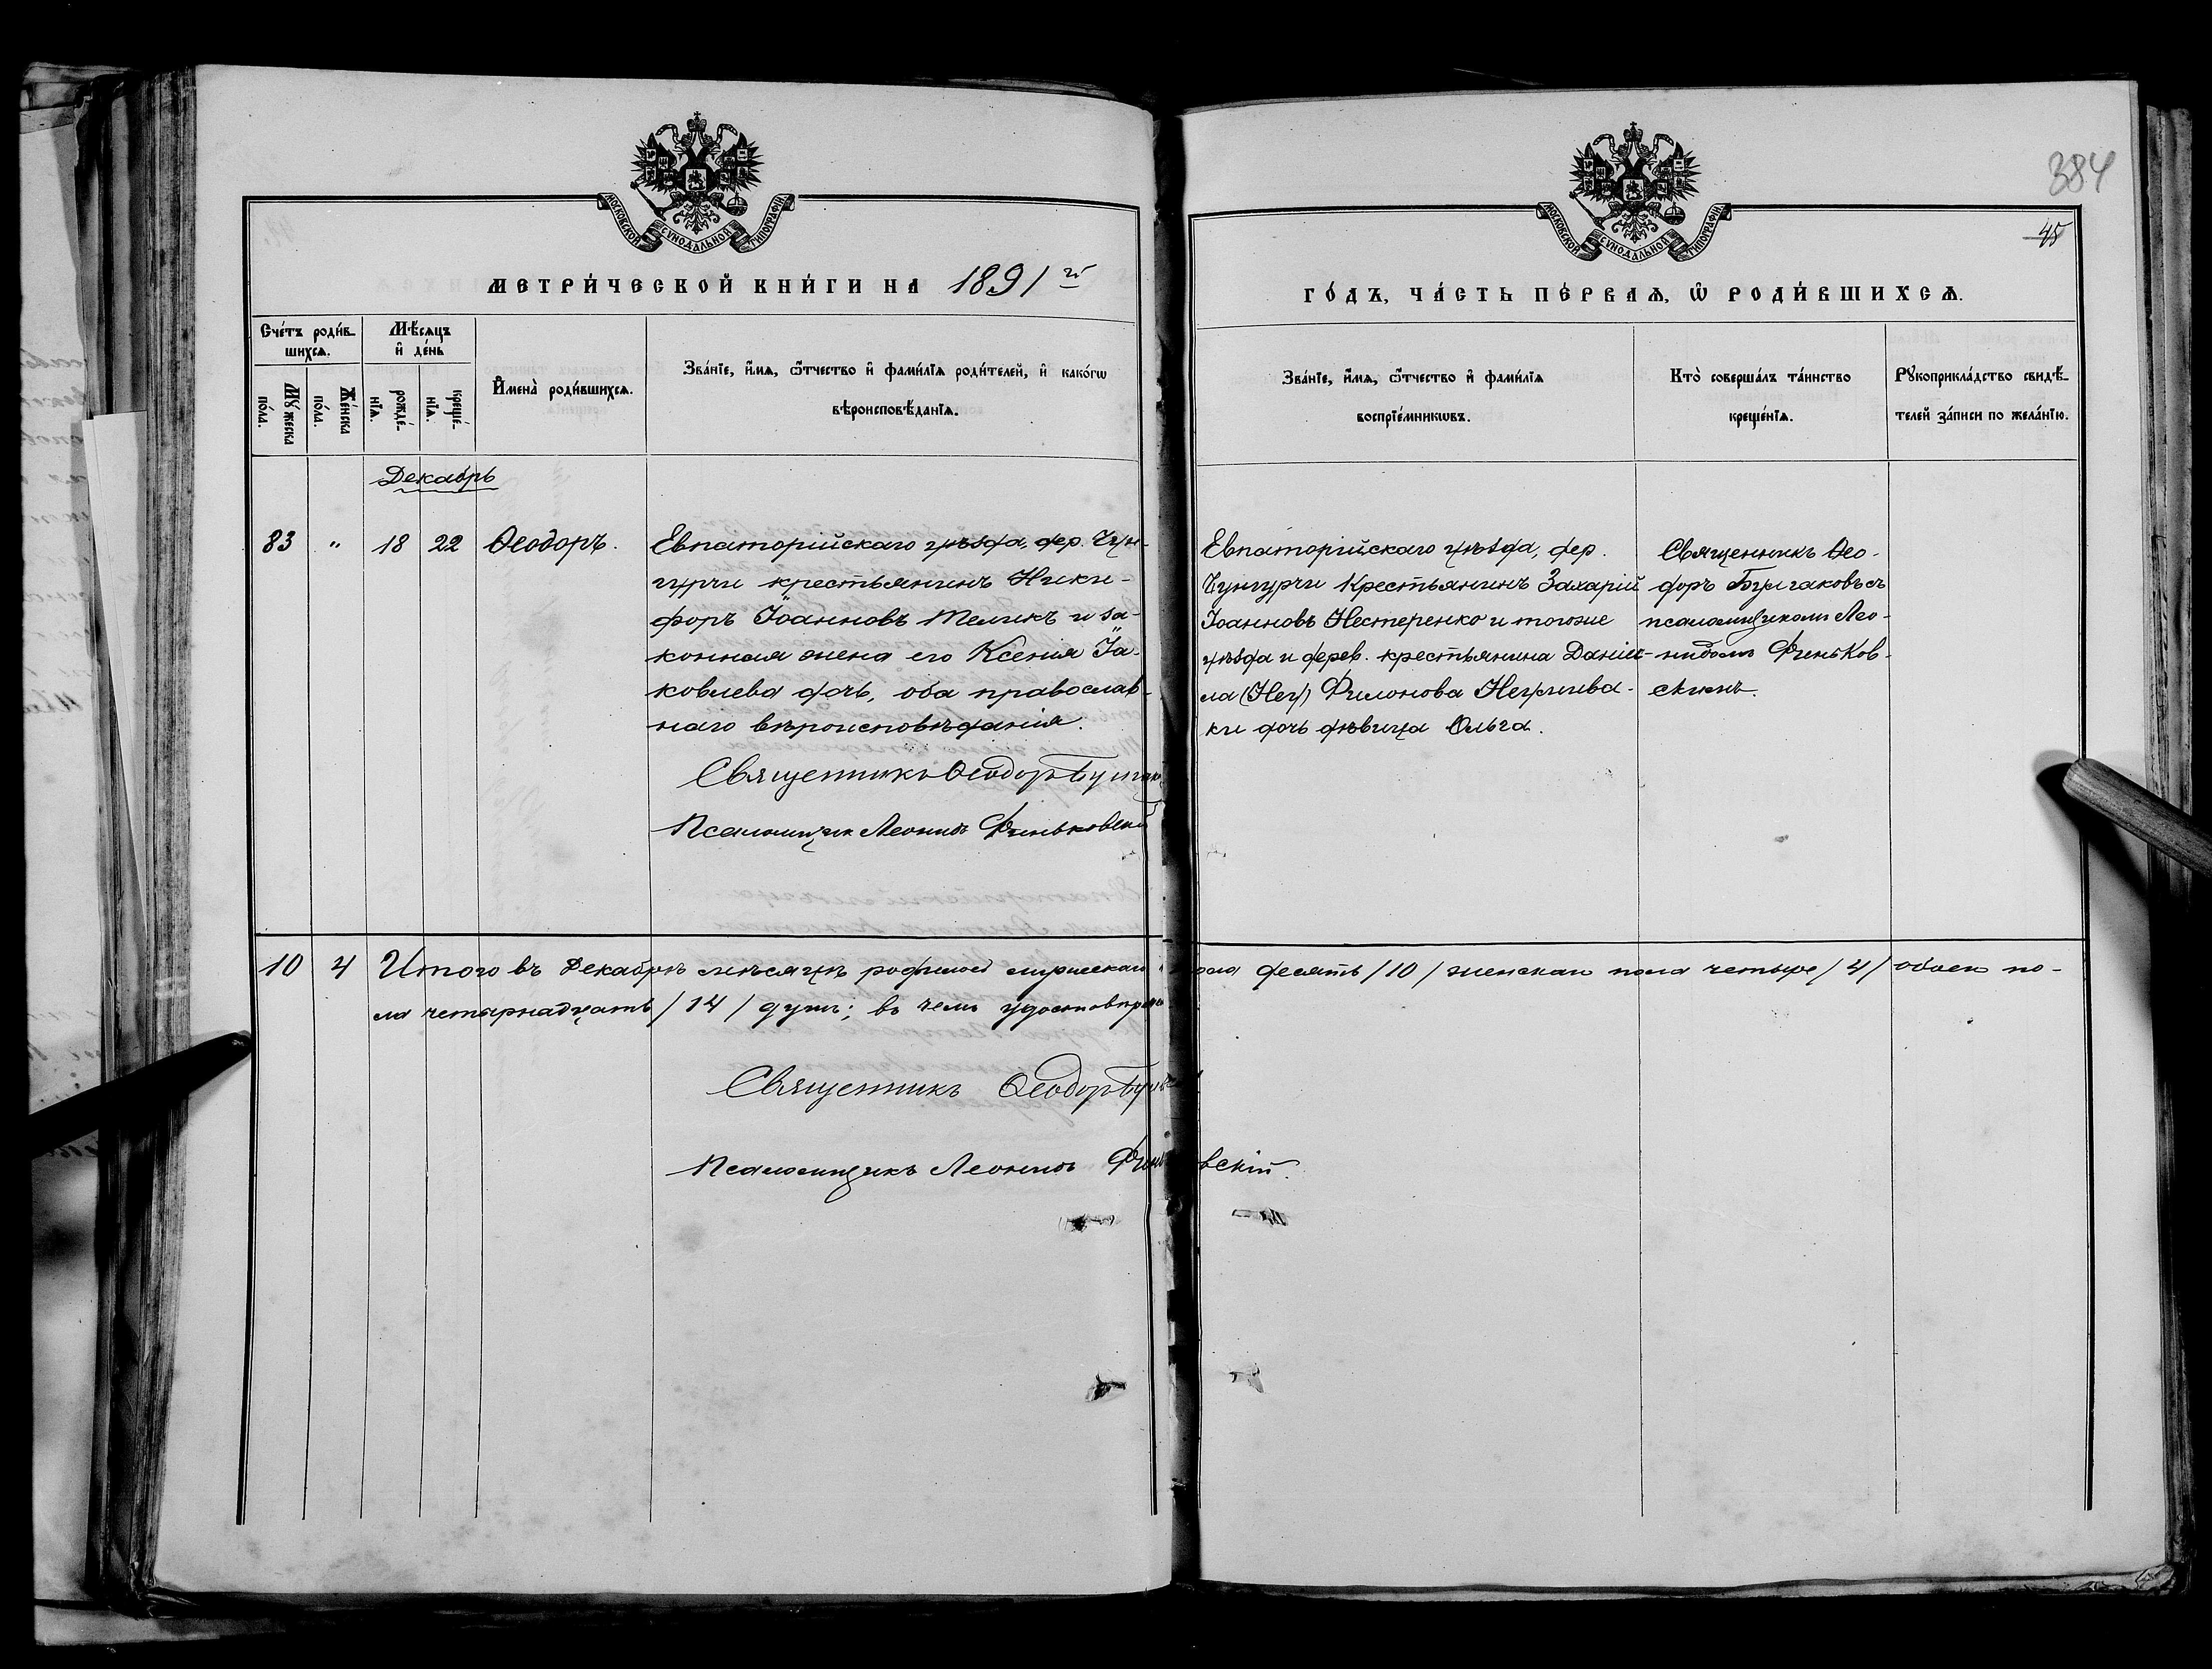 384
45
МОСКОВСКОЙ СУНОДАЛЬНОЙ ТИПОГРАФІИ
МОСКОВСКОЙ СУНОДАЛЬНОЙ ТИПОГРАФІИ
МЕТРИ́ЧЕСКОЙ КНИ́ГИ НА 1891 г.
ГО́ДЪ, ЧА́СТЬ ПЕ́РВАѦ, Ѡ҆ РОДИ́ВШИХСѦ.
Сче́тъ роди́в-
шихсѧ.
Мѣ́сяцъ
и҆ де́нь
Мꙋ́жеска по́ла.
Же́нска по́ла.
рожде́-
нїѧ.
креще́-
нїѧ.
И҆мена̀ роди́вшихсѧ.
Зва́нїе, и҆́мѧ, ѻ҆́тчество и҆ фами́лїѧ роди́телей, и҆ како́гѡ
вѣроисповѣ́данїѧ.
Зва́нїе, и҆́мѧ, ѻ҆́тчество и҆ фами́лїѧ
воспрїе́мникѡвъ.
Кто̀ соверша́лъ та́инство
креще́нїѧ.
Рꙋкоприкла́дство свидѣ́-
телей за́писи по жела́нїю.
Декабрь
83 " 18 22 Ѳеодоръ.
Евпаторійскаго уѣзда, дер. Чун-
гурчи крестьянинъ Ники-
форъ Іоанновъ Теликъ и за-
конная жена его Ксенія Іа-
ковлева дочь, оба православ-
наго вѣроисповѣданія.
Священникъ Ѳеодоръ Булгаков
Псаломщик Леонидъ Финьковскій
Евпаторійскаго уѣзда, дер.
Чунгурчи Крестьянинъ Захарій
Іоанновъ Нестеренко и тогоже
уѣзда и дерев. крестьянина Даніи-
ла Филонова
ки дочь дѣвица Ольга.
Священникъ Ѳео-
доръ Булгаковъ съ
псаломщикомъ Лео-
нидомъ Финьков-
скимъ.
10 4 Итого въ Декабрѣ мѣсяцѣ родилось мужеска пола десять /10/ женскаго пола четыре /4/ обоего по-
ла четырнадцать /14/ душъ; въ чемъ удостовѣряемъ
Священникъ Ѳеодоръ Булгаков
Псаломщикъ Леонидъ Финьковскій.